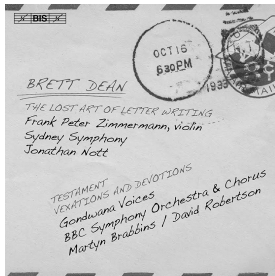 BIS
OCT 16
6 30PM
1933
BRETT DEAN
THE LOST ART OF LETTER WRITING
Frank Peter Zimmermann, violin
Sydney Symphony
Jonathan Nott
TESTAMENT
VEXATIONS AND DEVOTIONS
Gondwana Voices
BBC Symphony Orchestra & Chorus
Martyn Brabbins / David Robertson